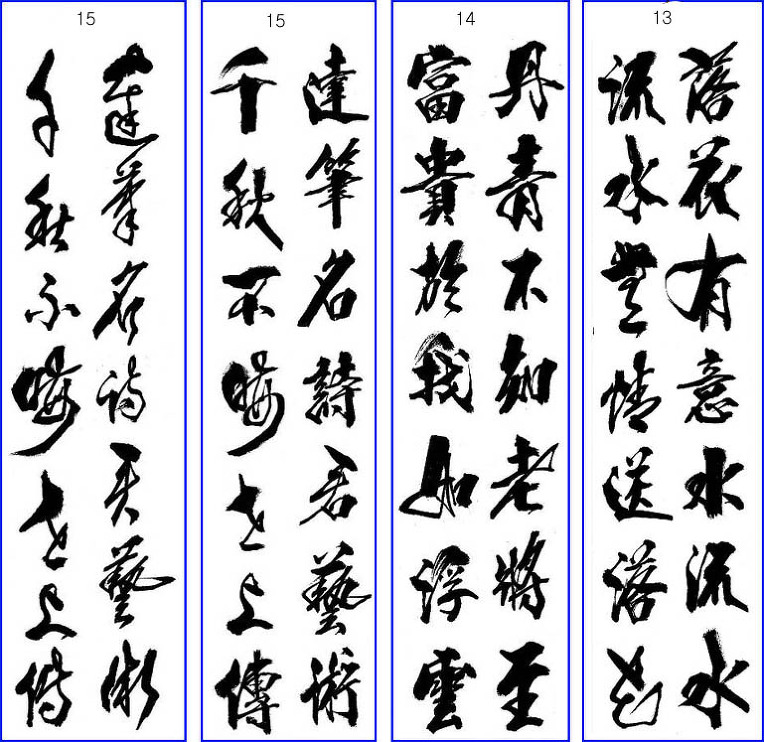 13
落花有意水流水
流水無情送落花
14
丹青不知老將至
富貴於我如浮雲
15
達筆名詩君藝術
千秋不晦世上傳
15
達筆名詩君藝術
千秋不晦世上傳